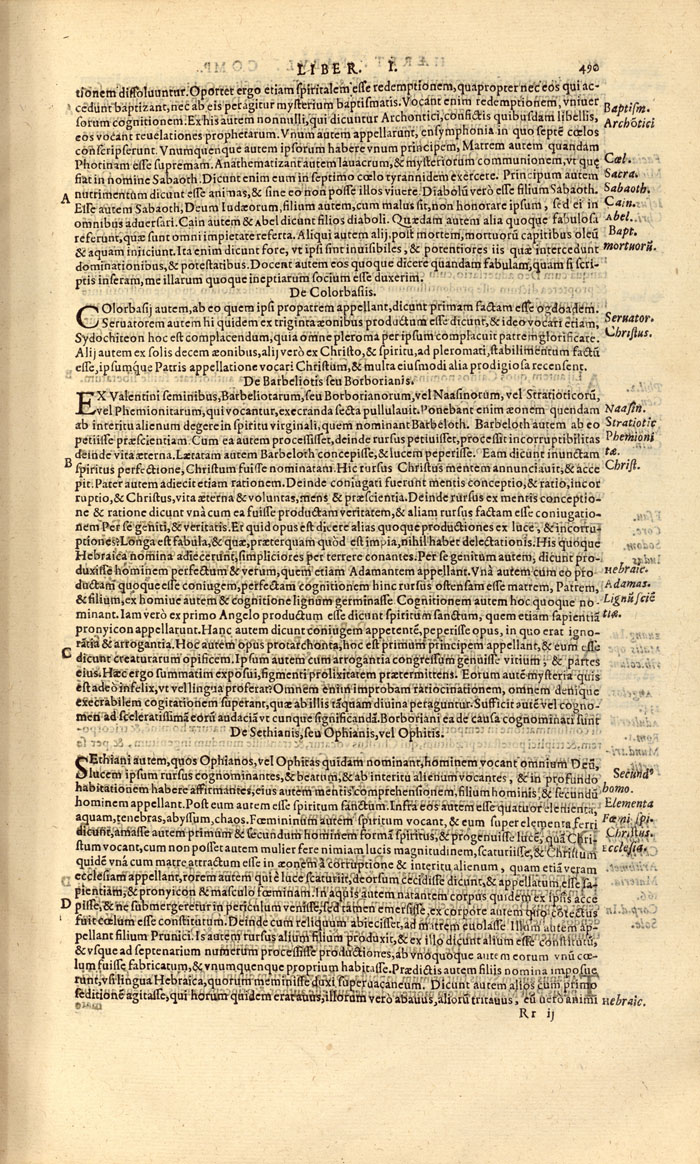 LIBER. I. 490
tionem dissoluuntur. Oportet ergo etiam spiritalem esse redemptionem, quapropter nec eos qui ac-
cedunt baptizant, nec ab eis peragitur mysterium baptismatis. Vocant enim redemptionem, vniuer
sorum cognitionem. Ex his autem nonnulli, qui dicuntur Archontici, confictis quibusdam libellis,
eos vocant reuelationes prophetarum. Vnum autem appellarunt, ensymphonia in quo septē cœlos
conscripserunt. Vnumquenque autem ipsorum habere vnum principem, Matrem autem quandam
Photinam esse supremam. Anathematizant autem lauacrum, & mysteriorum communionem, vt quę
fiat in nomine Sabaoth. Dicunt enim eum in septimo cœlo tyrannidem exercere. Principum autem
nutrimentum dicunt esse animas, & sine eo non posse illos viuere. Diabolū verò esse filium Sabaoth.
Esse autem Sabaoth, Deum Iudæorum, filium autem, cum malus sit, non honorare ipsum, sed ei in
omnibus aduersari. Cain autem & Abel dicunt filios diaboli. Quædam autem alia quoque fabulosa
referunt, quæ sunt omni impietate referta. Aliqui autem alij, post mortem, mortuorū capitibus oleū
& aquam iniiciunt. Ita enim dicunt fore, vt ipsi sint inuisibiles, & potentiores iis quæ intercedunt
dominationibus, & potestatibus. Docent autem eos quoque dicere quandam fabulam, quam si scri-
ptis inseram, me illarum quoque ineptiarum socium esse duxerim.
Baptism.
Archōtici
Cœl.
Sacra.
Sabaoth.
Cain.
Abel.
Bapt.
mortuorū.
A
De Colorbasiis.
COlorbasij autem, ab eo quem ipsi propatrem appellant, dicunt primam factam esse ogdoadem.
Seruatorem autem hi quidem ex triginta æonibus productum esse dicunt, & ideo vocari etiam,
Sydochiteon hoc est complacendum, quia omne pleroma per ipsum complacuit patrem glorificare.
Alij autem ex solis decem æonibus, alij verò ex Christo, & spiritu, ad pleromati, stabilimentum factū
esse, ipsumque Patris appellatione vocari Christum, & multa eiusmodi alia prodigiosa recensent.
Seruator.
Christus.
De Barbeliotis seu Borborianis.
EX Valentini seminibus, Barbeliotarum, seu Borborianorum, vel Naasinorum, vel Stratioticorū,
vel Phemionitarum, qui vocantur, execranda secta pullulauit. Ponebant enim æonem quendam
ab interitu alienum degere in spiritu virginali, quem nominant Barbeloth. Barbeloth autem ab eo
petiisse præscientiam. Cum ea autem processisset, deinde rursus petiuisset, processit incorruptibilitas
deinde vita æterna. Lætatam autem Barbeloth concepisse, & lucem peperisse. Eam dicunt inunctam
spiritus perfectione, Christum fuisse nominatam. Hic rursus Christus mentem annunciauit, & acce
pit. Pater autem adiecit etiam rationem. Deinde coniugati fuerunt mentis conceptio, & ratio, incor
ruptio, & Christus, vita æterna & voluntas, mens & præscientia. Deinde rursus ex mentis conceptio-
ne & ratione dicunt vnà cum ea fuisse productam veritatem, & aliam rursus factam esse coniugatio-
nem Per se geniti, & veritatis. Et quid opus est dicere alias quoque productiones ex luce, & incorru-
ptione? Longa est fabula, & quæ, præterquam quòd est impia, nihil habet delectationis. His quoque
Hebraica nomina adiecerunt, simpliciores per terrere conantes. Per se genitum autem, dicunt pro-
duxisse hominem perfectum & verum, quem etiam Adamantem appellant. Vnà autem cum eo pro-
ductam quoque esse coniugem, perfectam cognitionem hinc rursus ostensam esse matrem, Patrem,
& filium, ex homiue autem & cognitione lignum germinasse. Cognitionem autem hoc quoque no-
minant. Iam verò ex primo Angelo productum esse dicunt spiritum sanctum, quem etiam sapientiā
pronyicon appellarunt. Hanc autem dicunt coniugem appetentē, peperisse opus, in quo erat igno-
rātia & arrogantia. Hoc autem opus protarchonta, hoc est primum principem appellant, & eum esse
dicunt creaturarum opificem. Ipsum autem cum arrogantia congressum genuisse vitium, & partes
eius. Hæc ergo summatim exposui, figmenti prolixitatem prætermittens. Eorum autē mysteria quis
est adeò infelix, vt vel lingua proferat? Omnem enim improbam ratiocinationem, omnem denique
execrabilem cogitationem superant, quæ ab illis tāquam diuina peraguntur. Sufficit autē vel cogno-
men ad sceleratissimā eorū audaciā vt cunque significandā. Borboriani ea de causa cognominati sunt
Naasin.
Stratiotic
Phemioni
tæ.
Christ.
Hebraic.
Adamas.
Lignū sciē
tiæ.
B
C
De Sethianis, seu Ophianis, vel Ophitis.
SEthiani autem, quos Ophianos, vel Ophitas quidam nominant, hominem vocant omnium Deū,
lucem ipsum rursus cognominantes, & beatum, & ab interitu alienum vocantes, & in profundo
habitationem habere affirmantes, eius autem mentis comprehensionem, filium hominis, & secundū
hominem appellant. Post eum autem esse spiritum sanctum. Infra eos autem esse quatuor elementa,
aquam, tenebras, abyssum, chaos. Fœmininum autem spiritum vocant, & eum super elementa ferri
dicunt, amasse autem primum & secundum hominem formā spiritus, & progenuisse lucē, quā Chri-
stum vocant, cum non posset autem mulier fere nimiam lucis magnitudinem, scaturiisse, & Christum
quidē vnà cum matre attractum esse in æonem à corruptione & interitu alienum, quam etiā veram
ecclesiam appellant, rorem autem qui è luce scaturiit, deorsum cecidisse dicunt, & appellatum esse sa-
pientiam, & pronyicon & masculo fœminam. In aquis autem natantem corpus quidem ex ipsis acce
pisse, & ne submergeretur in periculum venisse, sed tamen emersisse, ex corpore autem quo cōtectus
fuit cœlum esse constitutum. Deinde cum reliquum abiecisset, ad matrem euolasse. Illum autem ap-
pellant filium Prunici. Is autem rursus alium filium produxit, & ex illo dicunt alium esse constitutū,
& vsque ad septenarium numerum processisse productiones, ab vnoquoque autem eorum vnū cœ-
lum fuisse fabricatum, & vnumquenque proprium habitasse. Prædictis autem filiis nomina imposue
runt, vsi lingua Hebraica, quorum meminisse duxi superuacaneum. Dicunt autem alios cum primo
seditionē agitasse, qui horum quidem erat auus, illorum verò abauus, aliorū tritauus, eū verò animi
Secundꝰ
homo.
Elementa
Fœni spi.
Christus.
Ecclesia.
Hebraic.
D
Rr ij